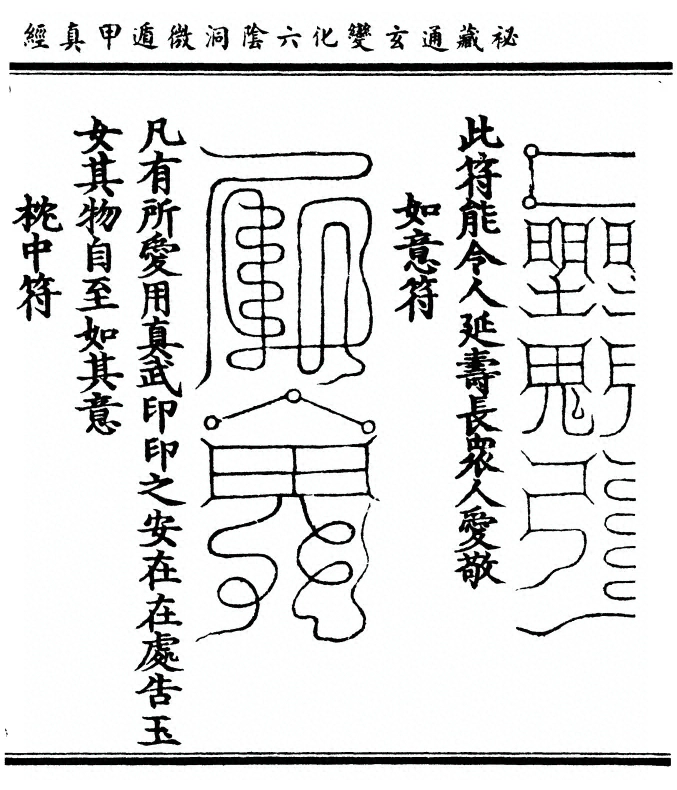 祕藏通玄變化六陰洞微遁甲真經
此符能令人延壽長眾人愛敬
如意符
凡有所愛用真武印印之安在在處告玉
女其物自至如其意
枕中符